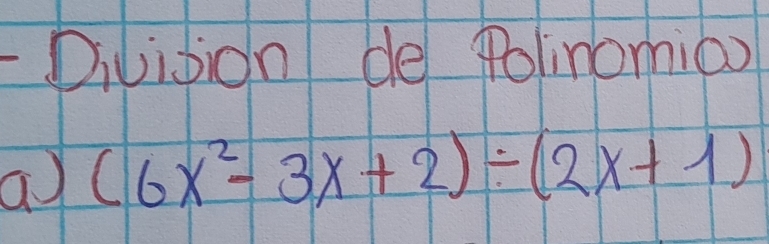 - Division de Polinomios
a) (6x² - 3x + 2) ÷ (2x + 1)